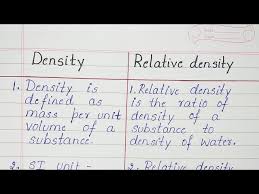 Density
Relative density
1. Density is
defined as
mass per unit
volume of a
substance.
1. Relative density
is the ratio of
density of a
substance to
density of water.
2. SI unit -
2. Relative density